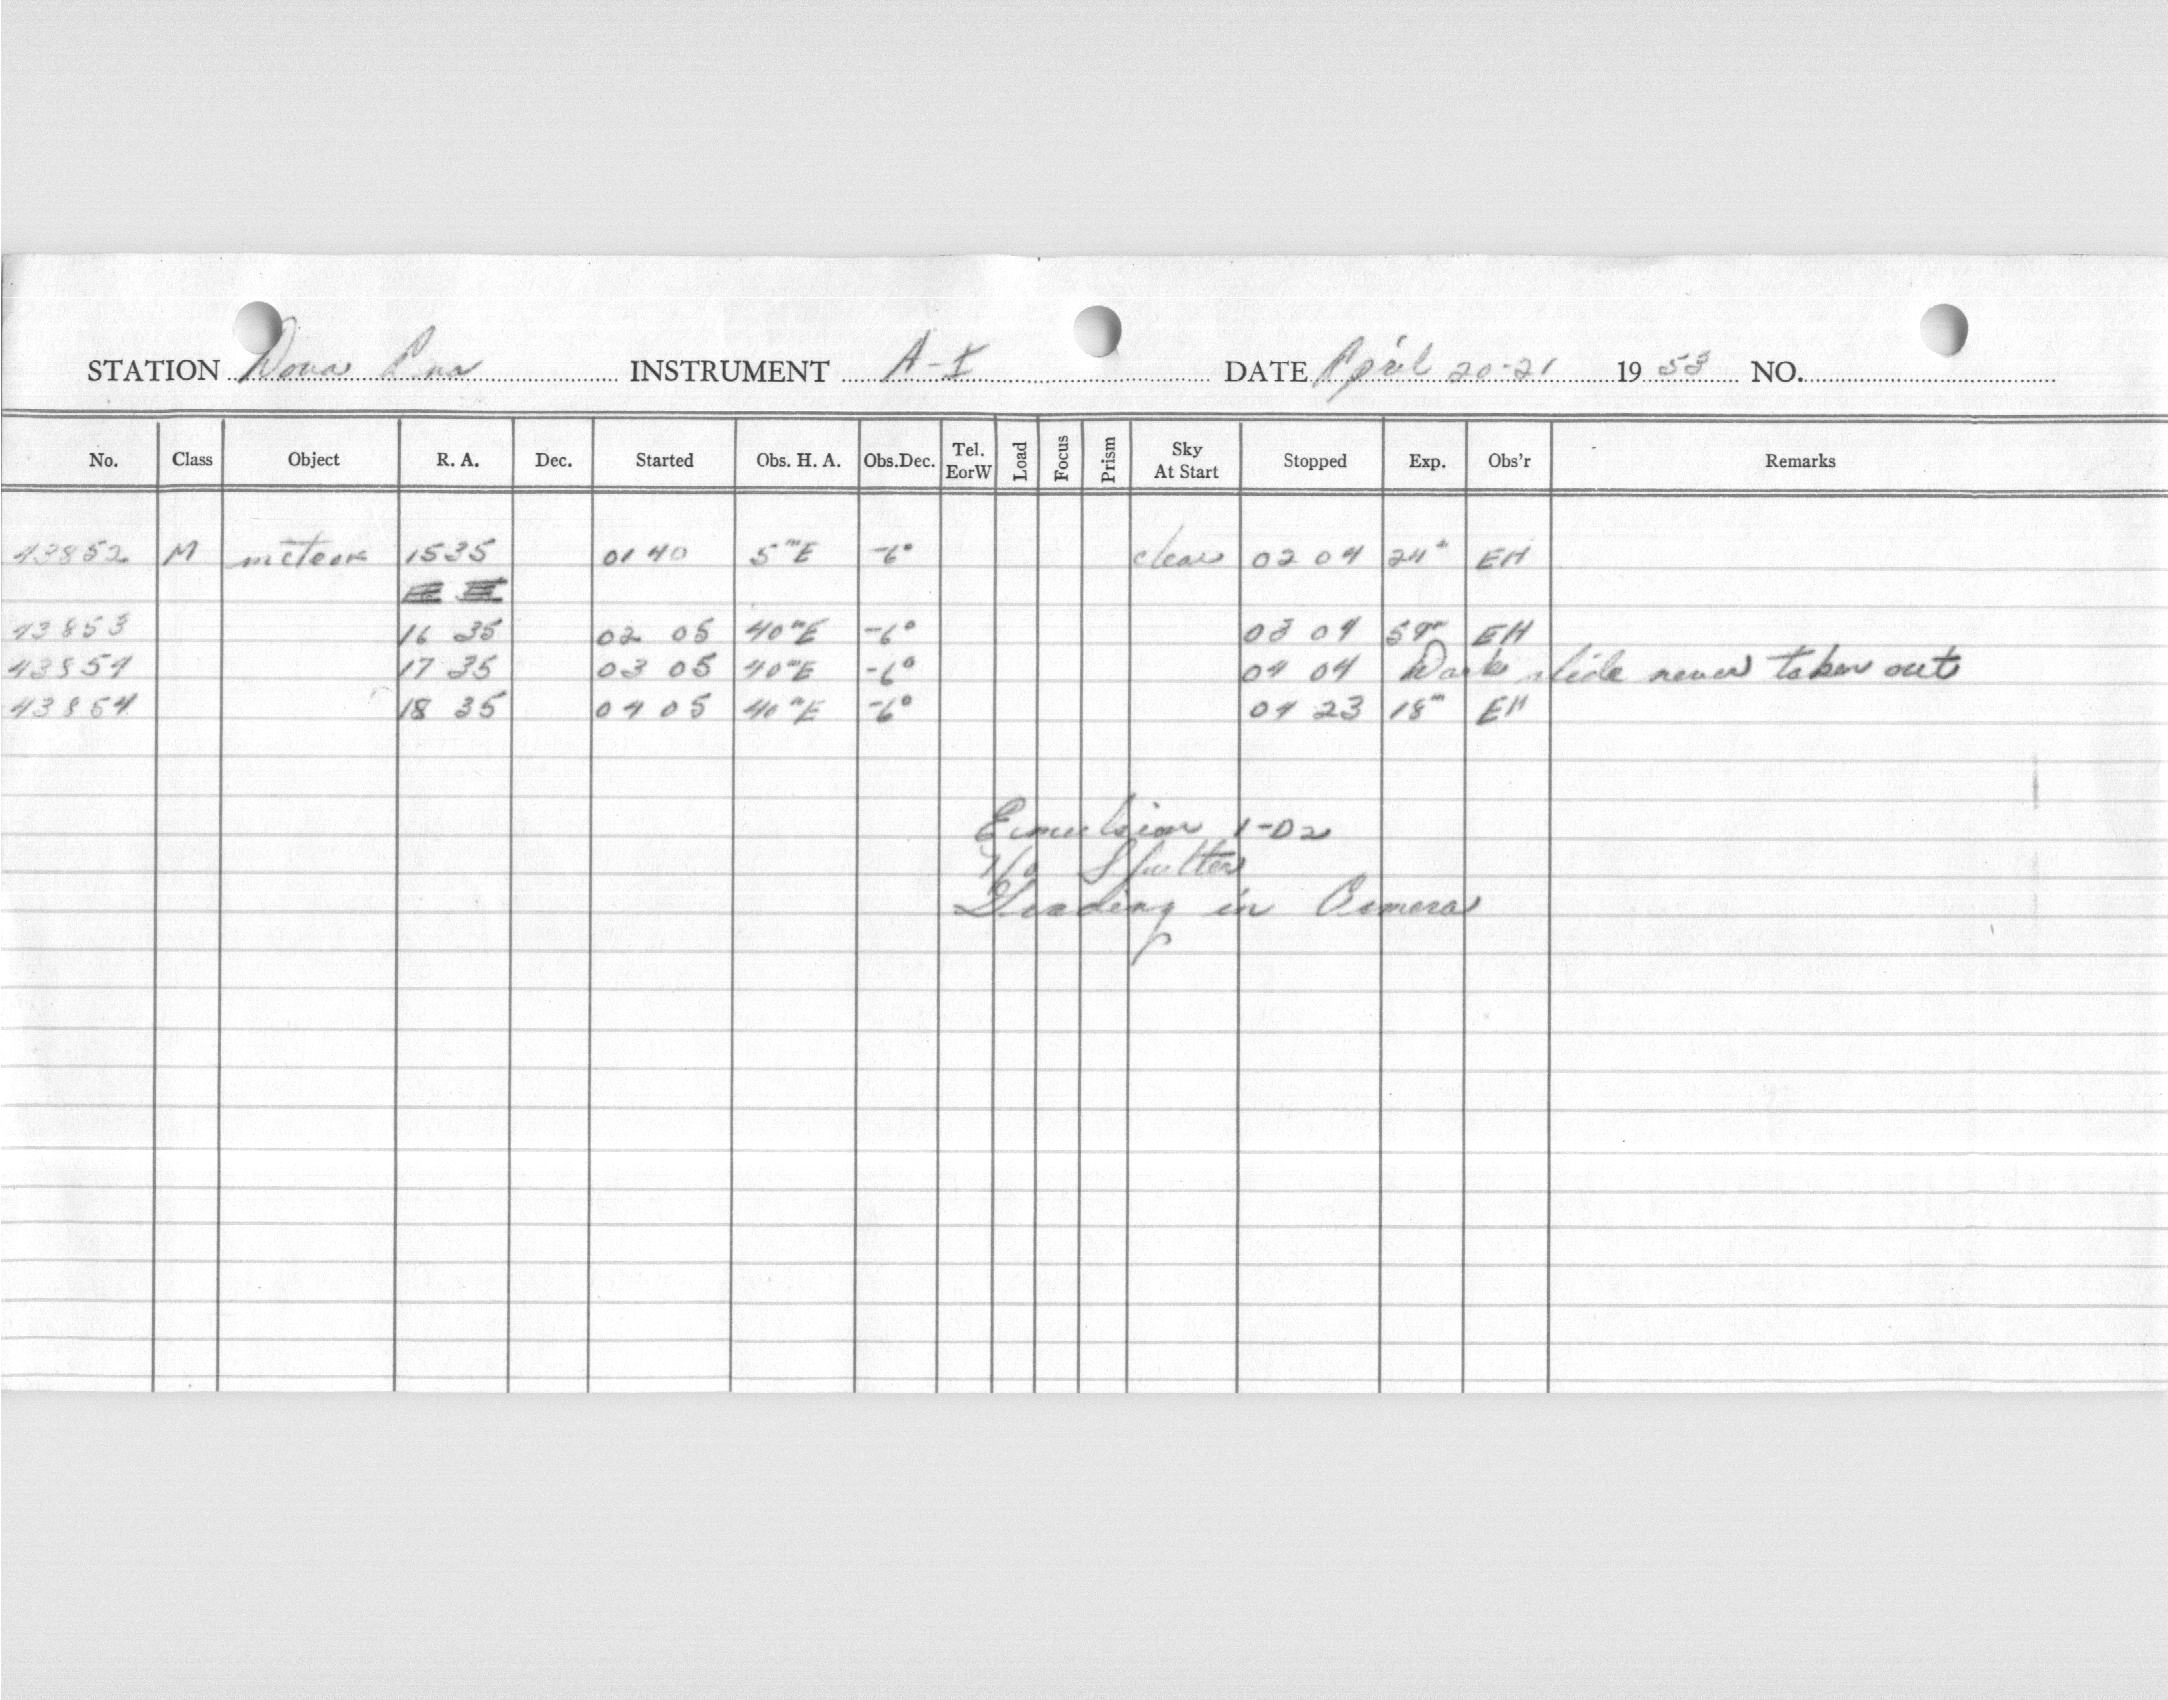 STATION Dona Ana INSTRUMENT A-I DATE April 20-21 1953 NO.
No. Class Object R. A. Dec. Started Obs. H. A. Obs.Dec. Tel. EorW Load Focus Prism Sky At Start Stopped Exp. Obs'r Remarks
43852 M meteor 1535 01 40 5ᵐE -6° clear 02 04 24ᵐ EH
43853 16 35 02 05 40ᵐE -6° 03 04 59ᵐ EH
43854 17 35 03 05 40ᵐE -6° 04 04 Dark slide never taken out
43854 18 35 04 05 40ᵐE -6° 04 23 18ᵐ EH
Emulsion 1-D2
Shutter
in Camera